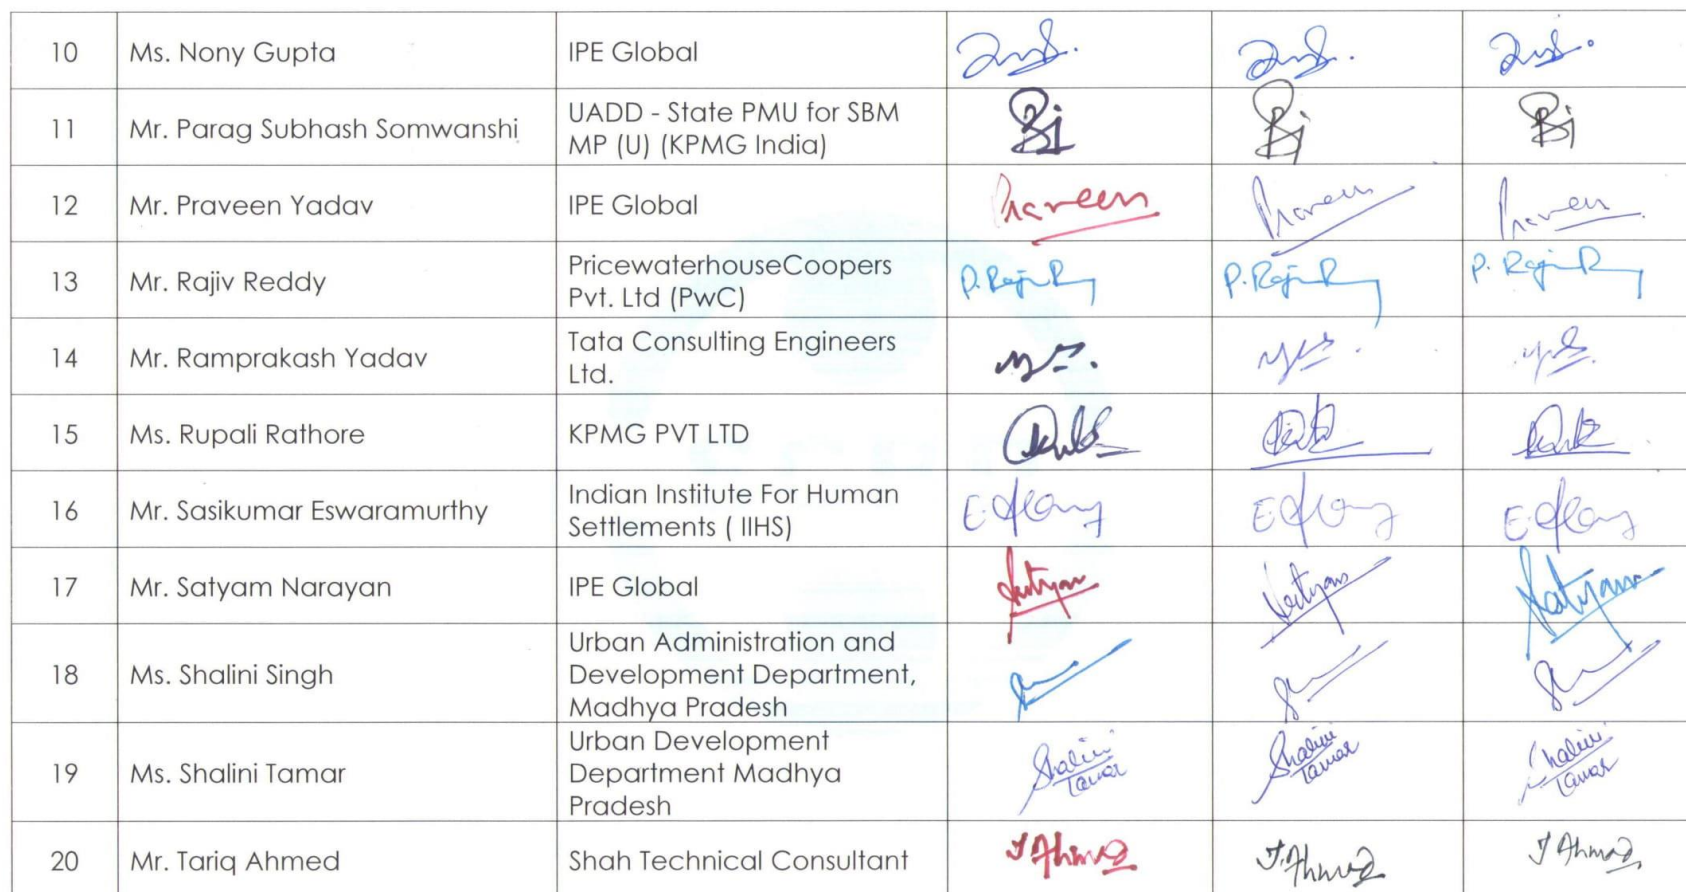 10 Ms. Nony Gupta IPE Global
11 Mr. Parag Subhash Somwanshi UADD - State PMU for SBM
MP (U) (KPMG India)
12 Mr. Praveen Yadav IPE Global Praveen Praveen Praveen
13 Mr. Rajiv Reddy PricewaterhouseCoopers
Pvt. Ltd (PwC)
14 Mr. Ramprakash Yadav Tata Consulting Engineers
Ltd.
15 Ms. Rupali Rathore KPMG PVT LTD
16 Mr. Sasikumar Eswaramurthy Indian Institute For Human
Settlements ( IIHS)
17 Mr. Satyam Narayan IPE Global Satyam Satyam Satyam
18 Ms. Shalini Singh Urban Administration and
Development Department,
Madhya Pradesh
19 Ms. Shalini Tamar Urban Development
Department Madhya
Pradesh
Shalini Shalini Shalini
Tamar Tamar Tamar
20 Mr. Tariq Ahmed Shah Technical Consultant T Ahmad T. Ahmad T Ahmad